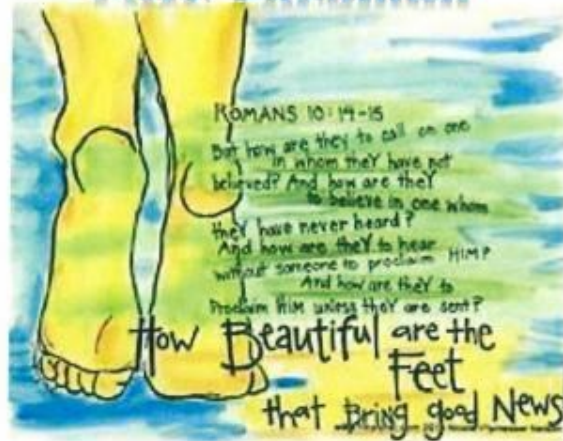 ROMANS 10:14-15
But how are they to call on one
in whom they have not
believed? And how are they
to believe in one whom
they have never heard?
And how are they to hear
without someone to proclaim HIM?
And how are they to
Proclaim HIM unless they are sent?
How Beautiful are the
Feet
that Bring good News